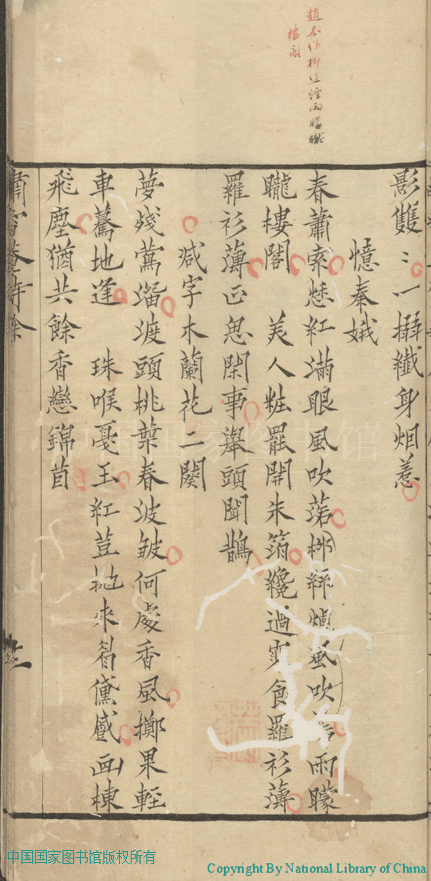 趙本作柳
樓閣
影雙〻一搦纖身烟惹
憶秦娥
春蕭索愁紅滿眼風吹落栁絲風吹雨矇
矓樓閣 美人粧罷開朱箔纔過寒食羅衫薄
羅衫薄正思閑事舉頭聞鵲
减字木蘭花二闋
夢殘鶯溜渡頭桃葉春波皺何處香風擲果輕
車驀地逢 珠喉戞玉紅荳抛來眉黛蹙画棟
飛塵猶共餘香戀錦茵
中国国家图书馆版权所有
Copyright By National Library of China